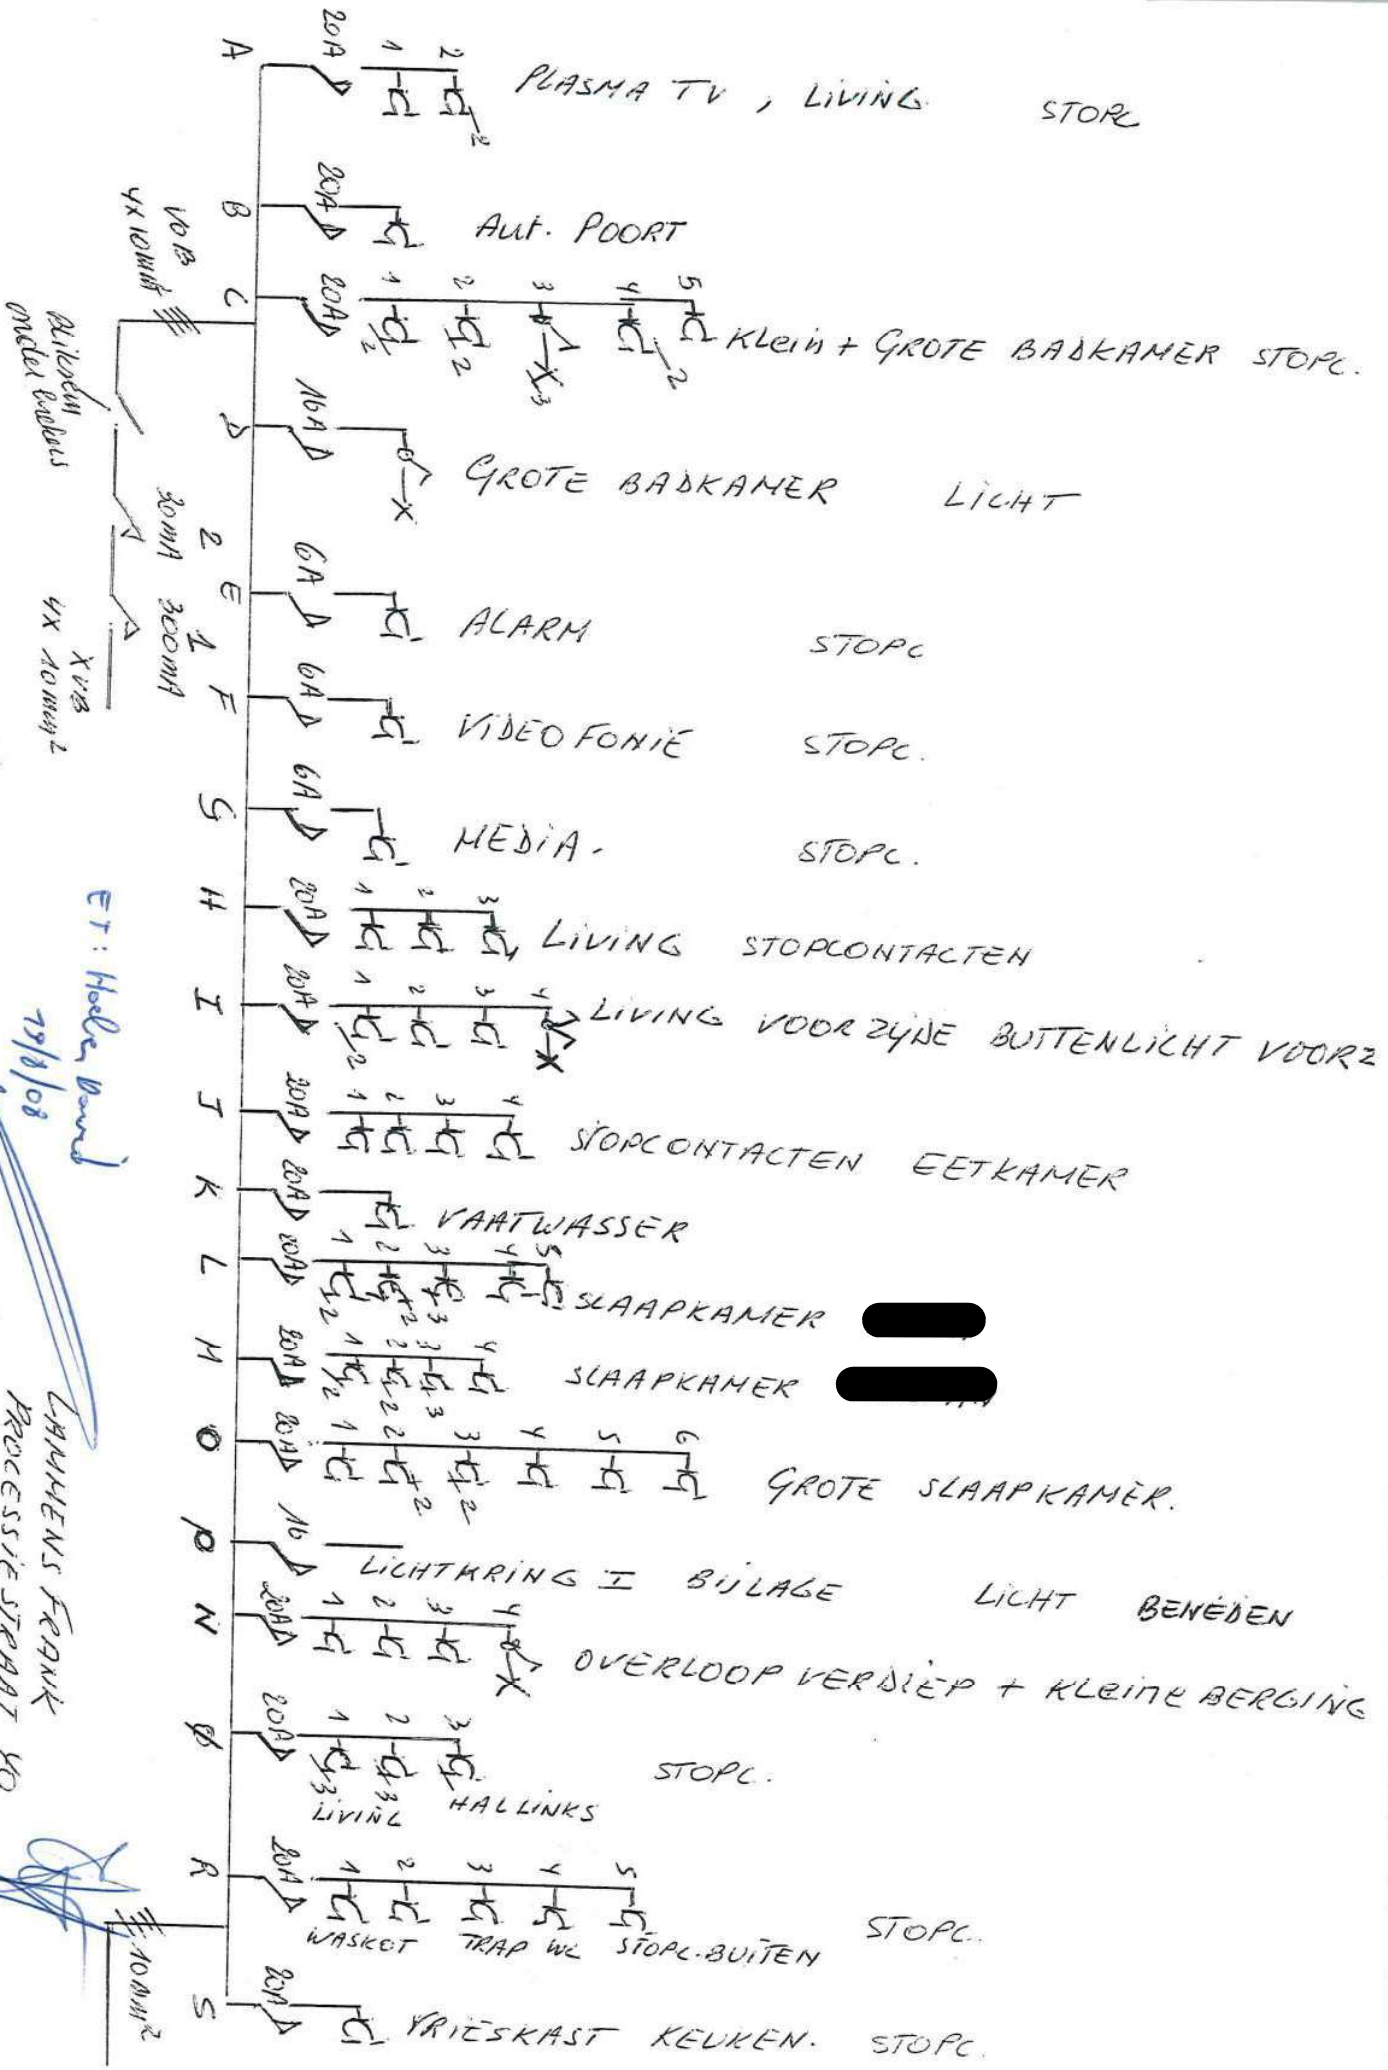 A 20A 1 2 2 PLASMA TV, LIVING STOPC
B 20A AUT. POORT
C 20A 1 2 3 4 5 2 2 3 2 Klein + GROTE BADKAMER STOPC.
VOB
4x10mm²
D 16A GROTE BADKAMER LICHT
2 30mA
1 300mA
XVB
4x 10mm²
E 6A ALARM STOPC
F 6A VIDEOFONIE STOPC.
G 6A MEDIA. STOPC.
H 20A 1 2 3 LIVING STOPCONTACTEN
I 20A 1 2 3 4 2 LIVING VOORZYDE BUITENLICHT VOORZ
J 20A 1 2 3 4 STOPCONTACTEN EETKAMER
K 20A VAATWASSER
L 20A 1 2 3 4 5 2 2 3 SLAAPKAMER
M 20A 1 2 3 4 2 2 3 SLAAPKAMER
O 20A 1 2 3 4 5 6 2 2 GROTE SLAAPKAMER.
P 16 LICHTKRING I BIJLAGE LICHT BENEDEN
N 20A 1 2 3 4 OVERLOOP VERDIEP + KLEINE BERGING
20A 1 2 3 3 3 STOPC.
LIVING HAL LINKS
R 20A 1 2 3 4 5 STOPC.
WASKOT TRAP WC STOPC.BUITEN
10mm²
S 20A VRIESKAST KEUKEN. STOPC.
ET:
LAMMENS FRANK
PROCESSIESTRAAT